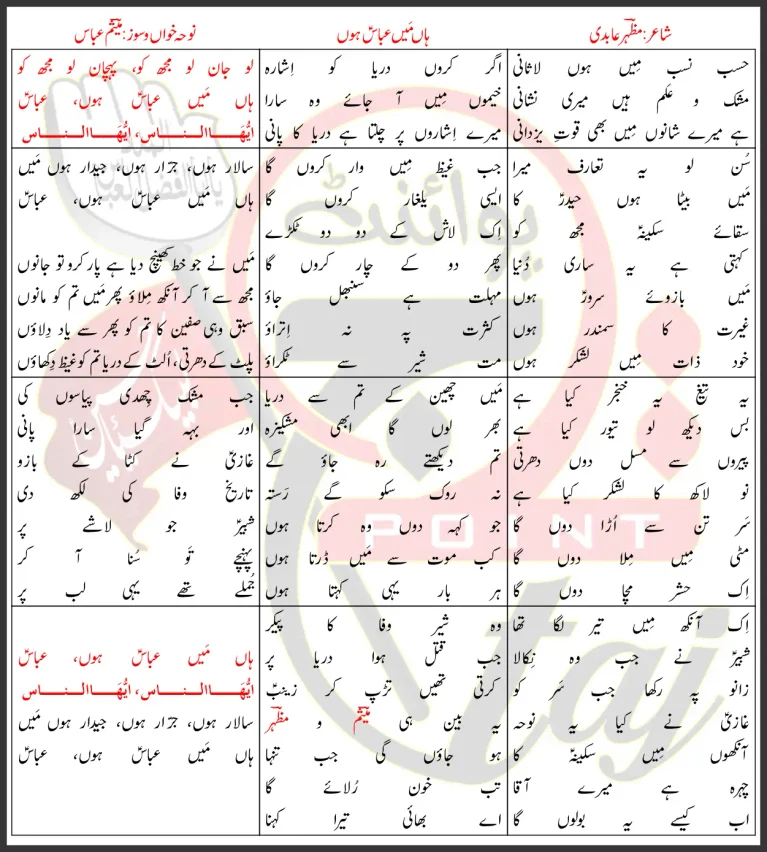 شاعر: مظہر عابدی
ہاں مَیں عباسؑ ہوں
نوحہ خواں و سوز: میثم عباس
حسب نسب مِیں ہوں لاثانی
مشک و عَلم ہیں میری نشانی
ہے میرے شانوں مِیں بھی قوتِ یزدانی
اگر کروں دریا کو اِشارہ
خیموں مِیں آ جائے وہ سارا
میرے اِشاروں پر چلتا ہے دریا کا پانی
لو جان لو مجھ کو، پہچان لو مجھ کو
ہاں مَیں عباسؑ ہوں، عباسؑ
ایُّھَاالناس، ایُّھَاالناس
سُن لو یہ تعارف میرا
مَیں بیٹا ہوں حیدرؑ کا
سقائے سکینہؑ مجھ کو
کہتی ہے یہ ساری دُنیا
مَیں بازوئے سرورؑ ہوں
غیرت کا سمندر ہوں
خود ذات مِیں لشکر ہوں
جب غیظ مِیں وار کروں گا
ایسی یلغار کروں گا
اِک لاش کے دو دو ٹکڑے
پھر دو کے چار کروں گا
مہلت ہے سنبھل جاؤ
کثرت پہ نہ اِتراؤ
مت شیر سے ٹکراؤ
سالار ہوں، جرّار ہوں، جیدار ہوں مَیں
ہاں مَیں عباسؑ ہوں، عباسؑ
مَیں نے جو خط کھینچ دیا ہے پار کرو تو جانوں
مجھ سے آ کر آنکھ مِلاؤ پھر مَیں تم کو مانوں
سبق وہی صفین کا تم کو پھر سے یاد دِلاؤں
پلٹ کے دھرتی، اُلٹ کے دریا تم کو غیظ دِکھاؤں
یہ تیغ یہ خنجر کیا ہے
بس دیکھ لو تیور کیا ہے
پیروں سے مسل دوں دھرتی
نو لاکھ کا لشکر کیا ہے
سَر تن سے اُڑا دوں گا
مٹی مِیں مِلا دوں گا
اِک حشر مچا دوں گا
مَیں چھین کے تم سے دریا
بھر لوں گا ابھی مشکیزہ
تم دیکھتے رہ جاؤ گے
نہ روک سکو گے رَستہ
جو کہہ دوں وہ کرتا ہوں
کب موت سے مَیں ڈرتا ہوں
ہر بار یہی کہتا ہوں
جب مشک چھدی پیاسوں کی
اور بہہ گیا سارا پانی
غازیؑ نے کٹا کے بازو
تاریخ وفا کی لکھ دی
شبیرؑ جو لاشے پر
پہنچے تو سُنا آ کر
جُملے تھے یہی لب پر
اِک آنکھ مِیں تیر لگا تھا
شبیرؑ نے جب وہ نِکالا
زانو پہ رکھا جب سَر کو
غازیؑ نے کیا یہ نوحہ
آنکھوں مِیں سکینہؑ کا
چہرہ ہے میرے آقا
اب کیسے یہ بولوں گا
وہ شیر وفا کا پیکر
جب قتل ہوا دریا پر
کرتی تھیں تڑپ کر زینبؑ
یہ بین ہی میثم و مظہر
ہو جاؤں گی جب تنہا
تب خون رُلائے گا
اے بھائی تیرا کہنا
ہاں مَیں عباسؑ ہوں، عباسؑ
ایُّھَاالناس، ایُّھَاالناس
سالار ہوں، جرّار ہوں، جیدار ہوں مَیں
ہاں مَیں عباسؑ ہوں، عباسؑ
پوائنٹ
POINT
taj